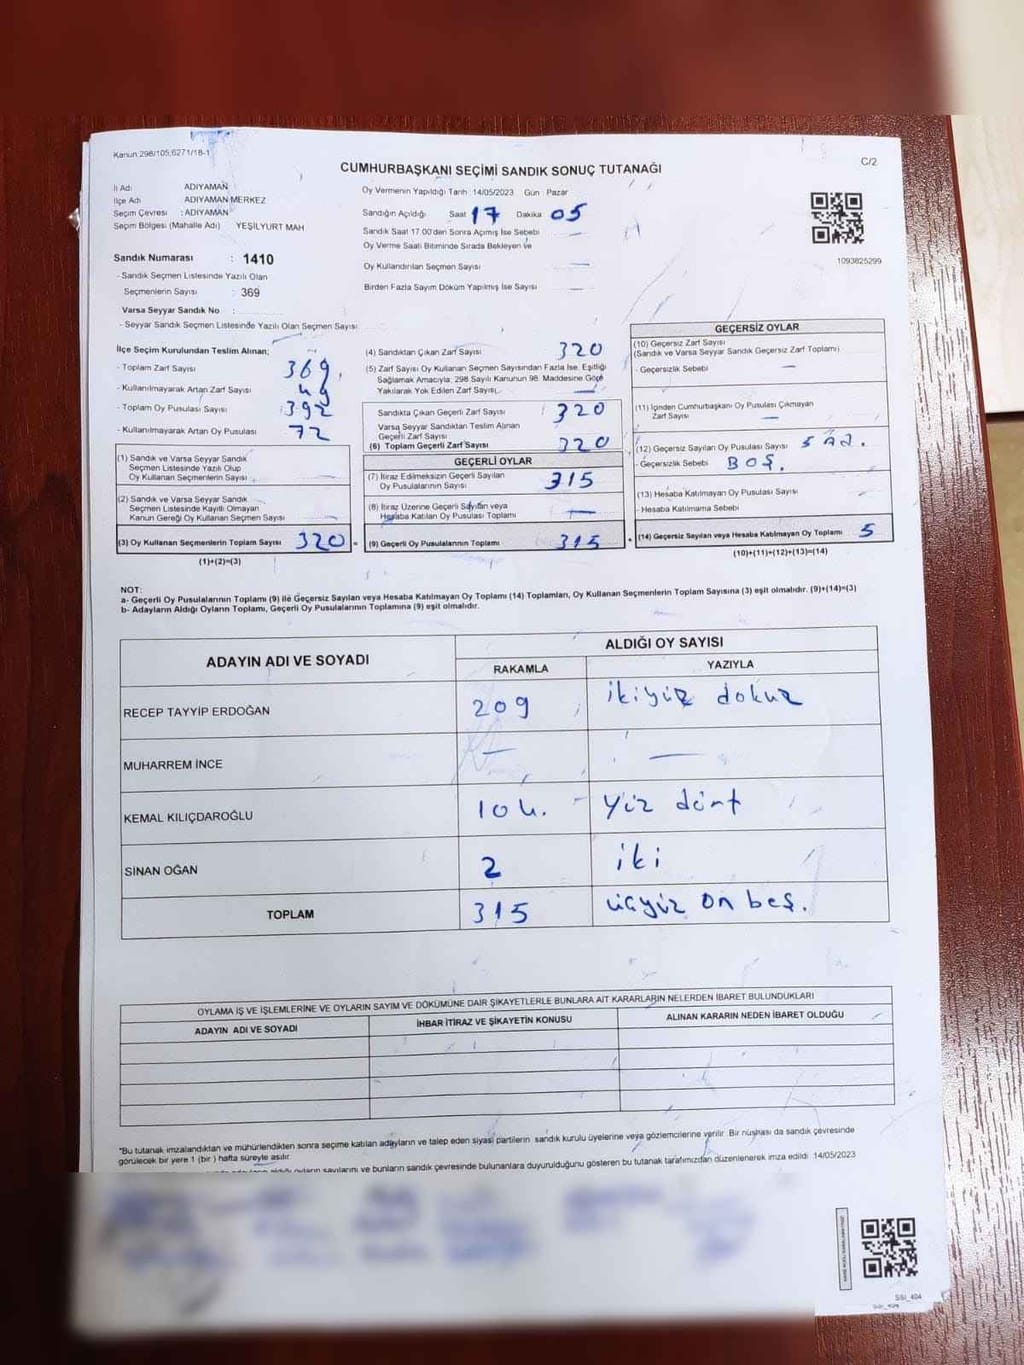 Kanun 298/105,6271/18-1
C/2
CUMHURBAŞKANI SEÇİMİ SANDIK SONUÇ TUTANAĞI
İl Adı ADIYAMAN
İlçe Adı ADIYAMAN MERKEZ
Seçim Çevresi : ADIYAMAN
Seçim Bölgesi (Mahalle Adı) YEŞİLYURT MAH
Sandık Numarası : 1410
- Sandık Seçmen Listesinde Yazılı Olan
Seçmenlerin Sayısı : 369
Varsa Seyyar Sandık No :
- Seyyar Sandık Seçmen Listesinde Yazılı Olan Seçmen Sayısı
Oy Vermenin Yapıldığı Tarih 14/05/2023 Gün Pazar
Sandığın Açıldığı Saat 17 Dakika 05
Sandık Saat 17.00'den Sonra Açımış İse Sebebi
Oy Verme Saati Bitiminde Sırada Bekleyen ve
Oy Kullandırılan Seçmen Sayısı
Birden Fazla Sayım Döküm Yapılmış İse Sayısı
1093825299
İlçe Seçim Kurulundan Teslim Alınan;
- Toplam Zarf Sayısı 369
- Kullanılmayarak Artan Zarf Sayısı 49
- Toplam Oy Pusulası Sayısı 392
- Kullanılmayarak Artan Oy Pusulası 72
(1) Sandık ve Varsa Seyyar Sandık
Seçmen Listesinde Yazılı Olup
Oy Kullanan Seçmenlerin Sayısı
(2) Sandık ve Varsa Seyyar Sandık
Seçmen Listesinde Kayıtlı Olmayan
Kanun Gereği Oy Kullanan Seçmen Sayısı
(3) Oy Kullanan Seçmenlerin Toplam Sayısı 320
(1)+(2)=(3)
(4) Sandıktan Çıkan Zarf Sayısı 320
(5) Zarf Sayısı Oy Kullanan Seçmen Sayısından Fazla İse, Eşitliği
Sağlamak Amacıyla; 298 Sayılı Kanunun 98. Maddesine Göre
Yakılarak Yok Edilen Zarf Sayısı
Sandıkta Çıkan Geçerli Zarf Sayısı 320
Varsa Seyyar Sandıktan Teslim Alınan
Geçerli Zarf Sayısı
(6) Toplam Geçerli Zarf Sayısı 320
GEÇERLİ OYLAR
(7) İtiraz Edilmeksizin Geçerli Sayılan
Oy Pusulalarının Sayısı 315
(8) İtiraz Üzerine Geçerli Sayılan veya
Hesaba Katılan Oy Pusulası Toplamı
(9) Geçerli Oy Pusulalarının Toplamı 315
GEÇERSİZ OYLAR
(10) Geçersiz Zarf Sayısı
(Sandık ve Varsa Seyyar Sandık Geçersiz Zarf Toplamı)
- Geçersizlik Sebebi
(11) İçinden Cumhurbaşkanı Oy Pusulası Çıkmayan
Zarf Sayısı
(12) Geçersiz Sayılan Oy Pusulası Sayısı 5 Ad.
- Geçersizlik Sebebi BOŞ.
(13) Hesaba Katılmayan Oy Pusulası Sayısı
- Hesaba Katılmama Sebebi
(14) Geçersiz Sayılan veya Hesaba Katılmayan Oy Toplamı 5
(10)+(11)+(12)+(13)=(14)
NOT:
a- Geçerli Oy Pusulalarının Toplamı (9) ile Geçersiz Sayılan veya Hesaba Katılmayan Oy Toplamı (14) Toplamları, Oy Kullanan Seçmenlerin Toplam Sayısına (3) eşit olmalıdır. (9)+(14)=(3)
b- Adayların Aldığı Oyların Toplamı, Geçerli Oy Pusulalarının Toplamına (9) eşit olmalıdır.
ADAYIN ADI VE SOYADI
ALDIĞI OY SAYISI
RAKAMLA YAZIYLA
RECEP TAYYİP ERDOĞAN 209 ikiyüz dokuz
MUHARREM İNCE — —
KEMAL KILIÇDAROĞLU 104. yüz dört
SİNAN OĞAN 2 iki
TOPLAM 315 üçyüz on beş.
OYLAMA İŞ VE İŞLEMLERİNE VE OYLARIN SAYIM VE DÖKÜMÜNE DAİR ŞİKAYETLERLE BUNLARA AİT KARARLARIN NELERDEN İBARET BULUNDUKLARI
ADAYIN ADI VE SOYADI İHBAR İTİRAZ VE ŞİKAYETİN KONUSU ALINAN KARARIN NEDEN İBARET OLDUĞU
*Bu tutanak imzalandıktan ve mühürlendikten sonra seçime katılan adayların ve talep eden siyasi partilerin sandık kurulu üyelerine veya gözlemcilerine verilir. Bir nüshası da sandık çevresinde
görülecek bir yere 1 (bir) hafta süreyle asılır.
oyların sayılarını ve bunların sandık çevresinde bulunanlara duyurulduğunu gösteren bu tutanak tarafımızdan düzenlenerek imza edildi. 14/05/2023
SSI_404